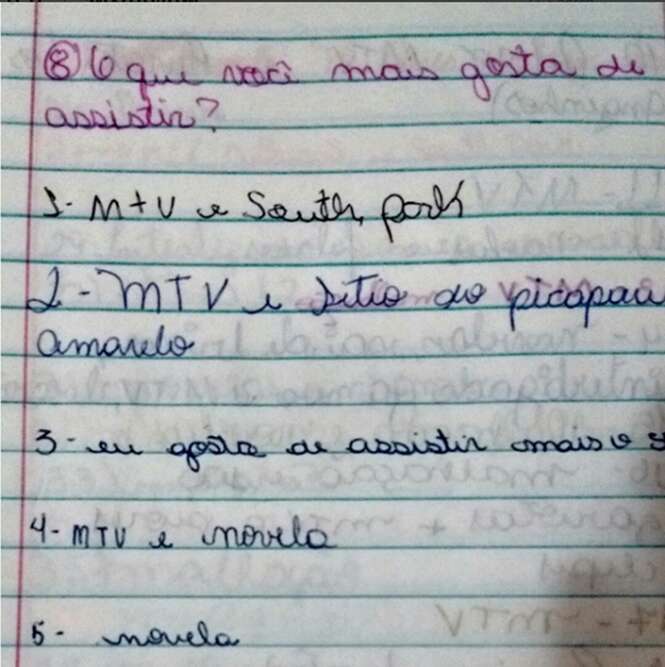 ⑧ O que você mais gosta de
assistir?
1- M+V e South park
2- MTV e sitio do picapau
amarelo
3- eu gosta de assistir mais o s
4- MTV e novela
5- novela